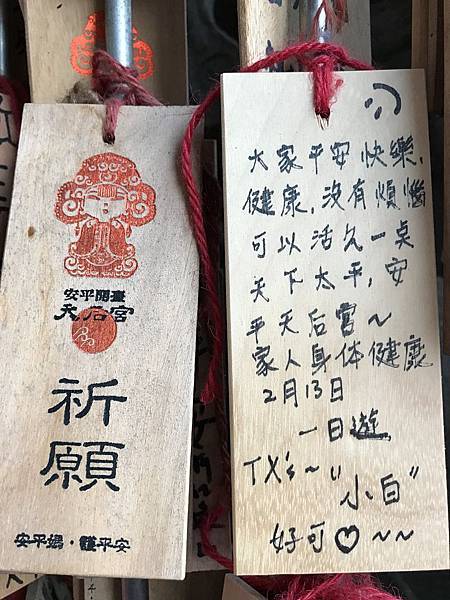 安平開臺
天后宮
祈願
安平媽・護平安
大家平安快樂,
健康,沒有煩惱
可以活久一点
天下太平,安
平天后宮~
家人身体健康
2月13日
一日遊
TX's~"小白"
好可♡~~